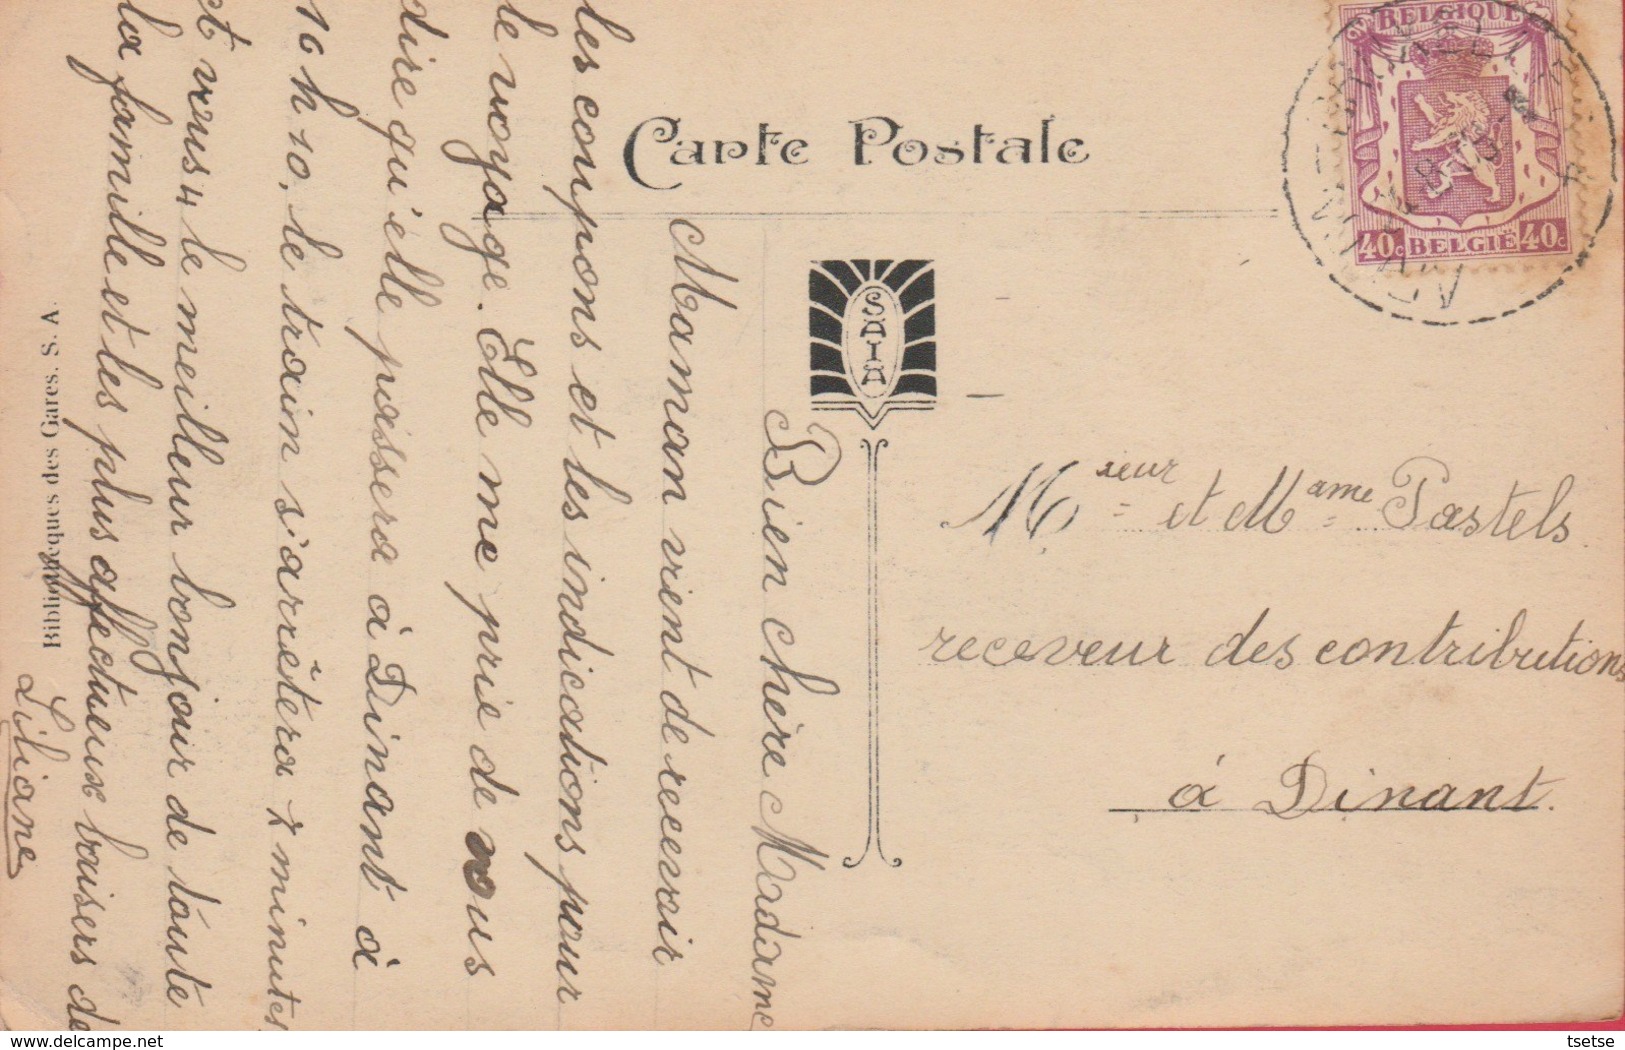 Carte Postale
BELGIQUE
40c BELGIË 40c
SAIA
Bien chère Madame
Maman vient de recevoir
les coupons et les indications pour
le voyage. Elle me prie de vous
dire qu'elle passera à Dinant à
10 h 10. le train s'arrêtera 7 minutes
et vous 4 le meilleur bonjour de toute
la famille et les plus affectueux baisers de
Liliane
Msieur et Mame Pastels
receveur des contributions
à Dinant.
Bibliothèques des Gares. S. A.
tsetse